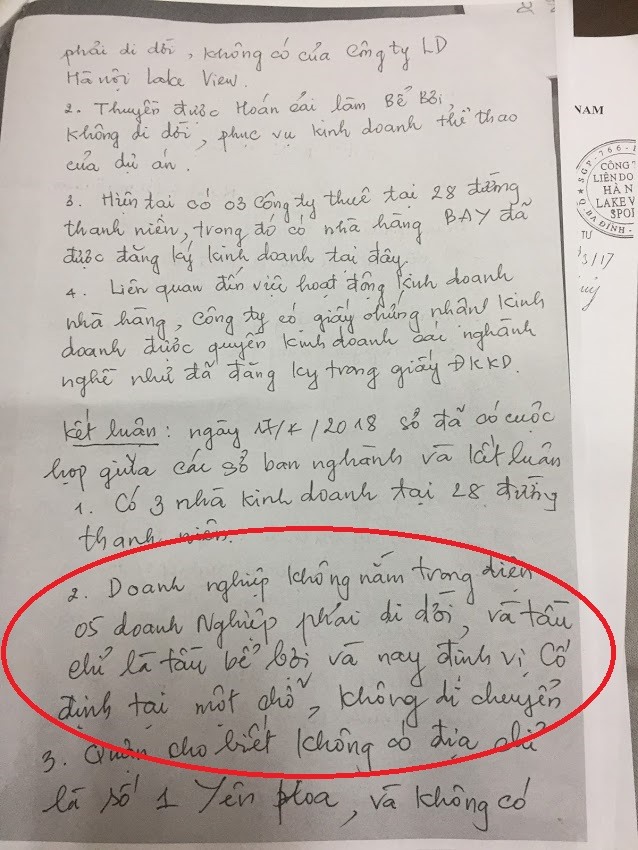 phải di dời, không có của Công ty LD
Hà nội Lake View.
2. Thuyền được Hoán cải làm Bể Bơi,
không di dời, phục vụ kinh doanh thể thao
của dự án.
3. Hiện tại có 03 Công ty thuê tại 28 đường
thanh niên, trong đó có nhà hàng BAY đã
được đăng ký kinh doanh tại đây
4. Liên quan đến việc hoạt động kinh doanh
nhà hàng, Công ty có giấy chứng nhận kinh
doanh được quyền kinh doanh các nghành
nghề như đã đăng ký trong giấy ĐKKD.
Kết luận: ngày 17/4/2018 sở đã có cuộc
họp giữa các sở ban nghành và kết luân
1. Có 3 nhà kinh doanh tại 28 đường
thanh niên.
2. Doanh nghiệp không nằm trong diện
05 doanh Nghiệp phải di dời, và tầu
chỉ là tầu bể bơi và nay định vị Cố
định tại một chỗ, không di chuyển
3. Quận cho biết không có địa chỉ
là số 1 Yên ploa, và không có
NAM
SGP-766-1
CÔNG T
LIÊN DO
HÀ N
LAKE V
SPO
BA ĐÌNH
TƯ
3/17